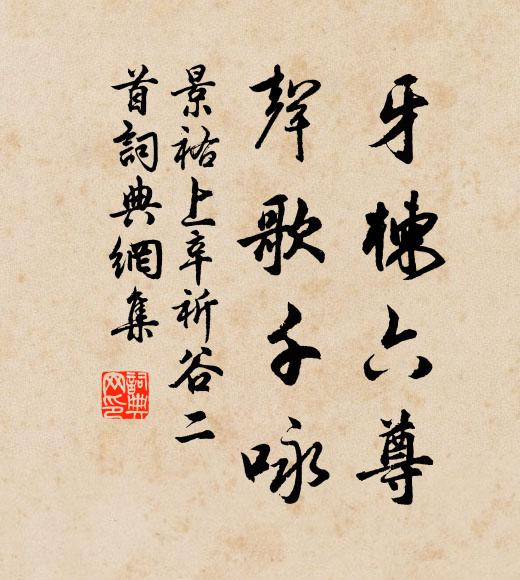 牙楝六尊
聲歌千咏
景祐上辛祈谷二
首詞典網集
詞典
网印